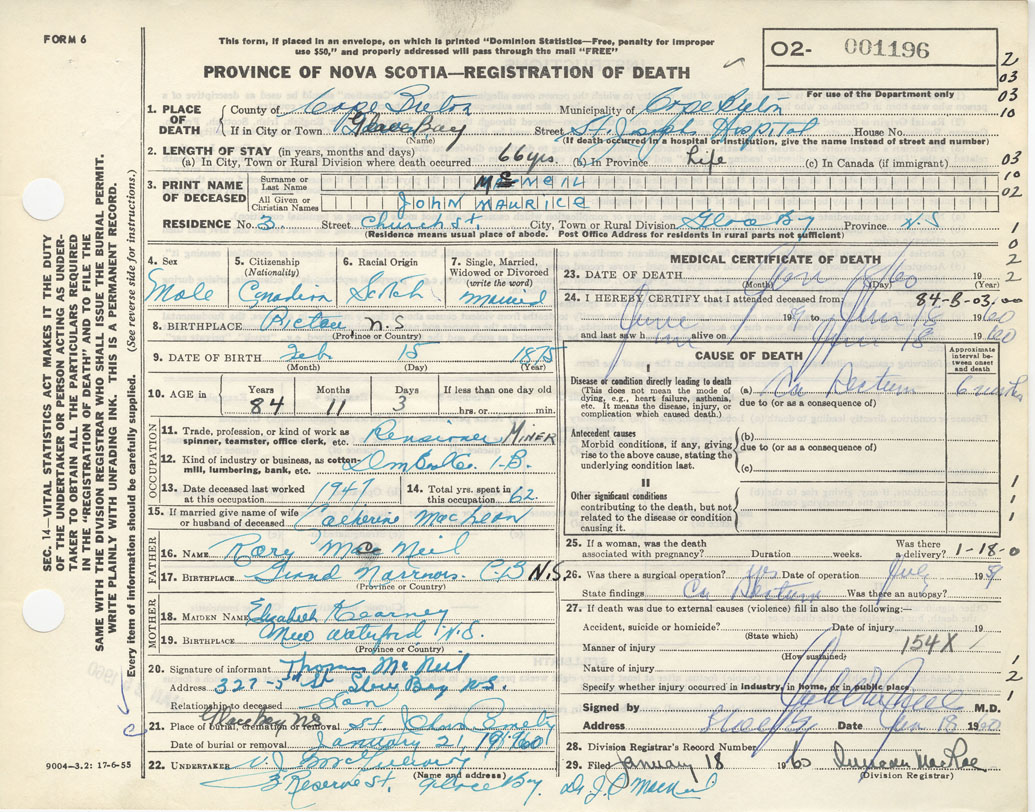 FORM 6
This form, if placed in an envelope, on which is printed "Dominion Statistics—Free, penalty for improper
use $50," and properly addressed will pass through the mail "FREE"
02- 001196
For use of the Department only
PROVINCE OF NOVA SCOTIA—REGISTRATION OF DEATH
2
03
03
10
03
10
02
1
0
2
2
SEC. 14—VITAL STATISTICS ACT MAKES IT THE DUTY
OF THE UNDERTAKER OR PERSON ACTING AS UNDER-
TAKER TO OBTAIN ALL THE PARTICULARS REQUIRED
IN THE "REGISTRATION OF DEATH" AND TO FILE THE
SAME WITH THE DIVISION REGISTRAR WHO SHALL ISSUE THE BURIAL PERMIT.
WRITE PLAINLY WITH UNFADING INK. THIS IS A PERMANENT RECORD.
Every item of information should be carefully supplied. (See reverse side for instructions.)
1. PLACE OF DEATH County of Cape Breton Municipality of Cape Breton
If in City or Town Glace Bay Street St. Josephs Hospital House No.
(Name) (If death occurred in a hospital or institution, give the name instead of street and number)
2. LENGTH OF STAY (in years, months and days)
(a) In City, Town or Rural Division where death occurred 66 yrs. (b) In Province Life (c) In Canada (if immigrant)
3. PRINT NAME OF DECEASED Surname or Last Name McNEIL
All Given or Christian Names JOHN MAURICE
RESIDENCE No. 3 Street Church St. City, Town or Rural Division Glace Bay Province N.S
(Residence means usual place of abode. Post Office Address for residents in rural parts not sufficient)
4. Sex Male
5. Citizenship (Nationality) Canadian
6. Racial Origin Scotch
7. Single, Married, Widowed or Divorced (write the word) Married
8. BIRTHPLACE Pictou, N.S
(Province or Country)
9. DATE OF BIRTH Feb 15 1875
(Month) (Day) (Year)
10. AGE in Years 84 Months 11 Days 3 If less than one day old hrs. or min.
OCCUPATION
11. Trade, profession, or kind of work as spinner, teamster, office clerk, etc. Pensioner MINER
12. Kind of industry or business, as cotton-mill, lumbering, bank, etc. 1-B.
13. Date deceased last worked at this occupation 1947
14. Total yrs. spent in this occupation 62
15. If married give name of wife or husband of deceased Catherine MacLean
FATHER
16. NAME Rory MacNeil
17. BIRTHPLACE Grand Narrows C.B N.S.
(Province or Country)
MOTHER
18. MAIDEN NAME Elizabeth Kearney
19. BIRTHPLACE New Waterford N.S.
(Province or Country)
20. Signature of informant Thomas McNeil
Address 327-5th St Glace Bay N.S.
Relationship to deceased Son
21. Place of burial, cremation or removal Glace Bay NS St.
Date of burial or removal January 21, 1960
22. UNDERTAKER
(Name and address)
3 Reserve St. Glace Bay.
9004—3.2: 17-6-55
MEDICAL CERTIFICATE OF DEATH
23. DATE OF DEATH Jan 18 60 19
(Month) (Day) (Year)
24. I HEREBY CERTIFY that I attended deceased from 84-B-03.00
June 19 Jan 18 1960
and last saw h im alive on Jan 18 1960
CAUSE OF DEATH
Approximate interval between onset and death
I
Disease or condition directly leading to death
(This does not mean the mode of dying, e.g., heart failure, asthenia, etc. It means the disease, injury, or complication which caused death.)
(a) Ca Rectum 6 months
due to (or as a consequence of)
Antecedent causes
Morbid conditions, if any, giving rise to the above cause, stating the underlying condition last.
(b)
due to (or as a consequence of)
(c)
II
Other significant conditions
contributing to the death, but not related to the disease or condition causing it.
1
1
1
25. If a woman, was the death associated with pregnancy? Duration weeks. Was there a delivery? 1-18-0
26. Was there a surgical operation? yes Date of operation July 1959
State findings Ca Rectum Was there an autopsy?
27. If death was due to external causes (violence) fill in also the following:—
Accident, suicide or homicide? Date of injury 19
(State which)
Manner of injury 154X
(How sustained)
Nature of injury
Specify whether injury occurred in industry, in home, or in public place
1
2
1
Signed by M.D.
Address Glace Bay Date Jan 18 1960
28. Division Registrar's Record Number
29. Filed January 18 1960 Duncan MacRae
(Division Registrar)